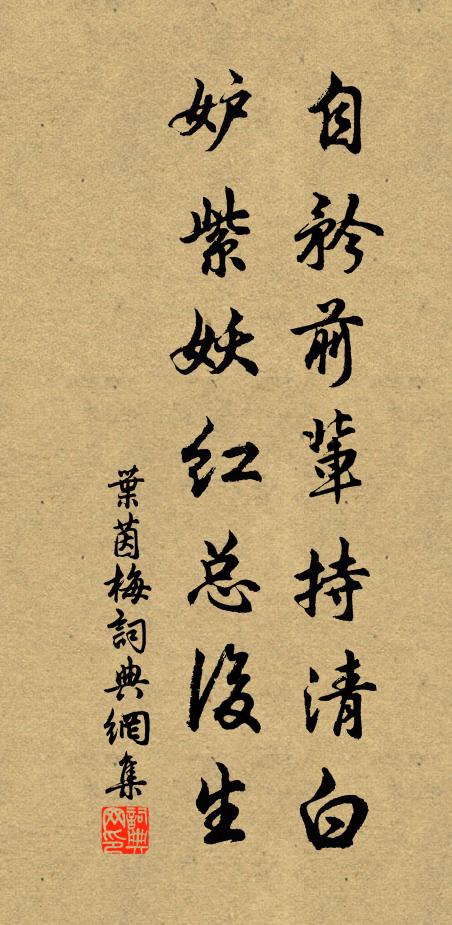 自矜前輩持清白
妒紫妖红总後生
葉茵梅詞典網集
詞典网印